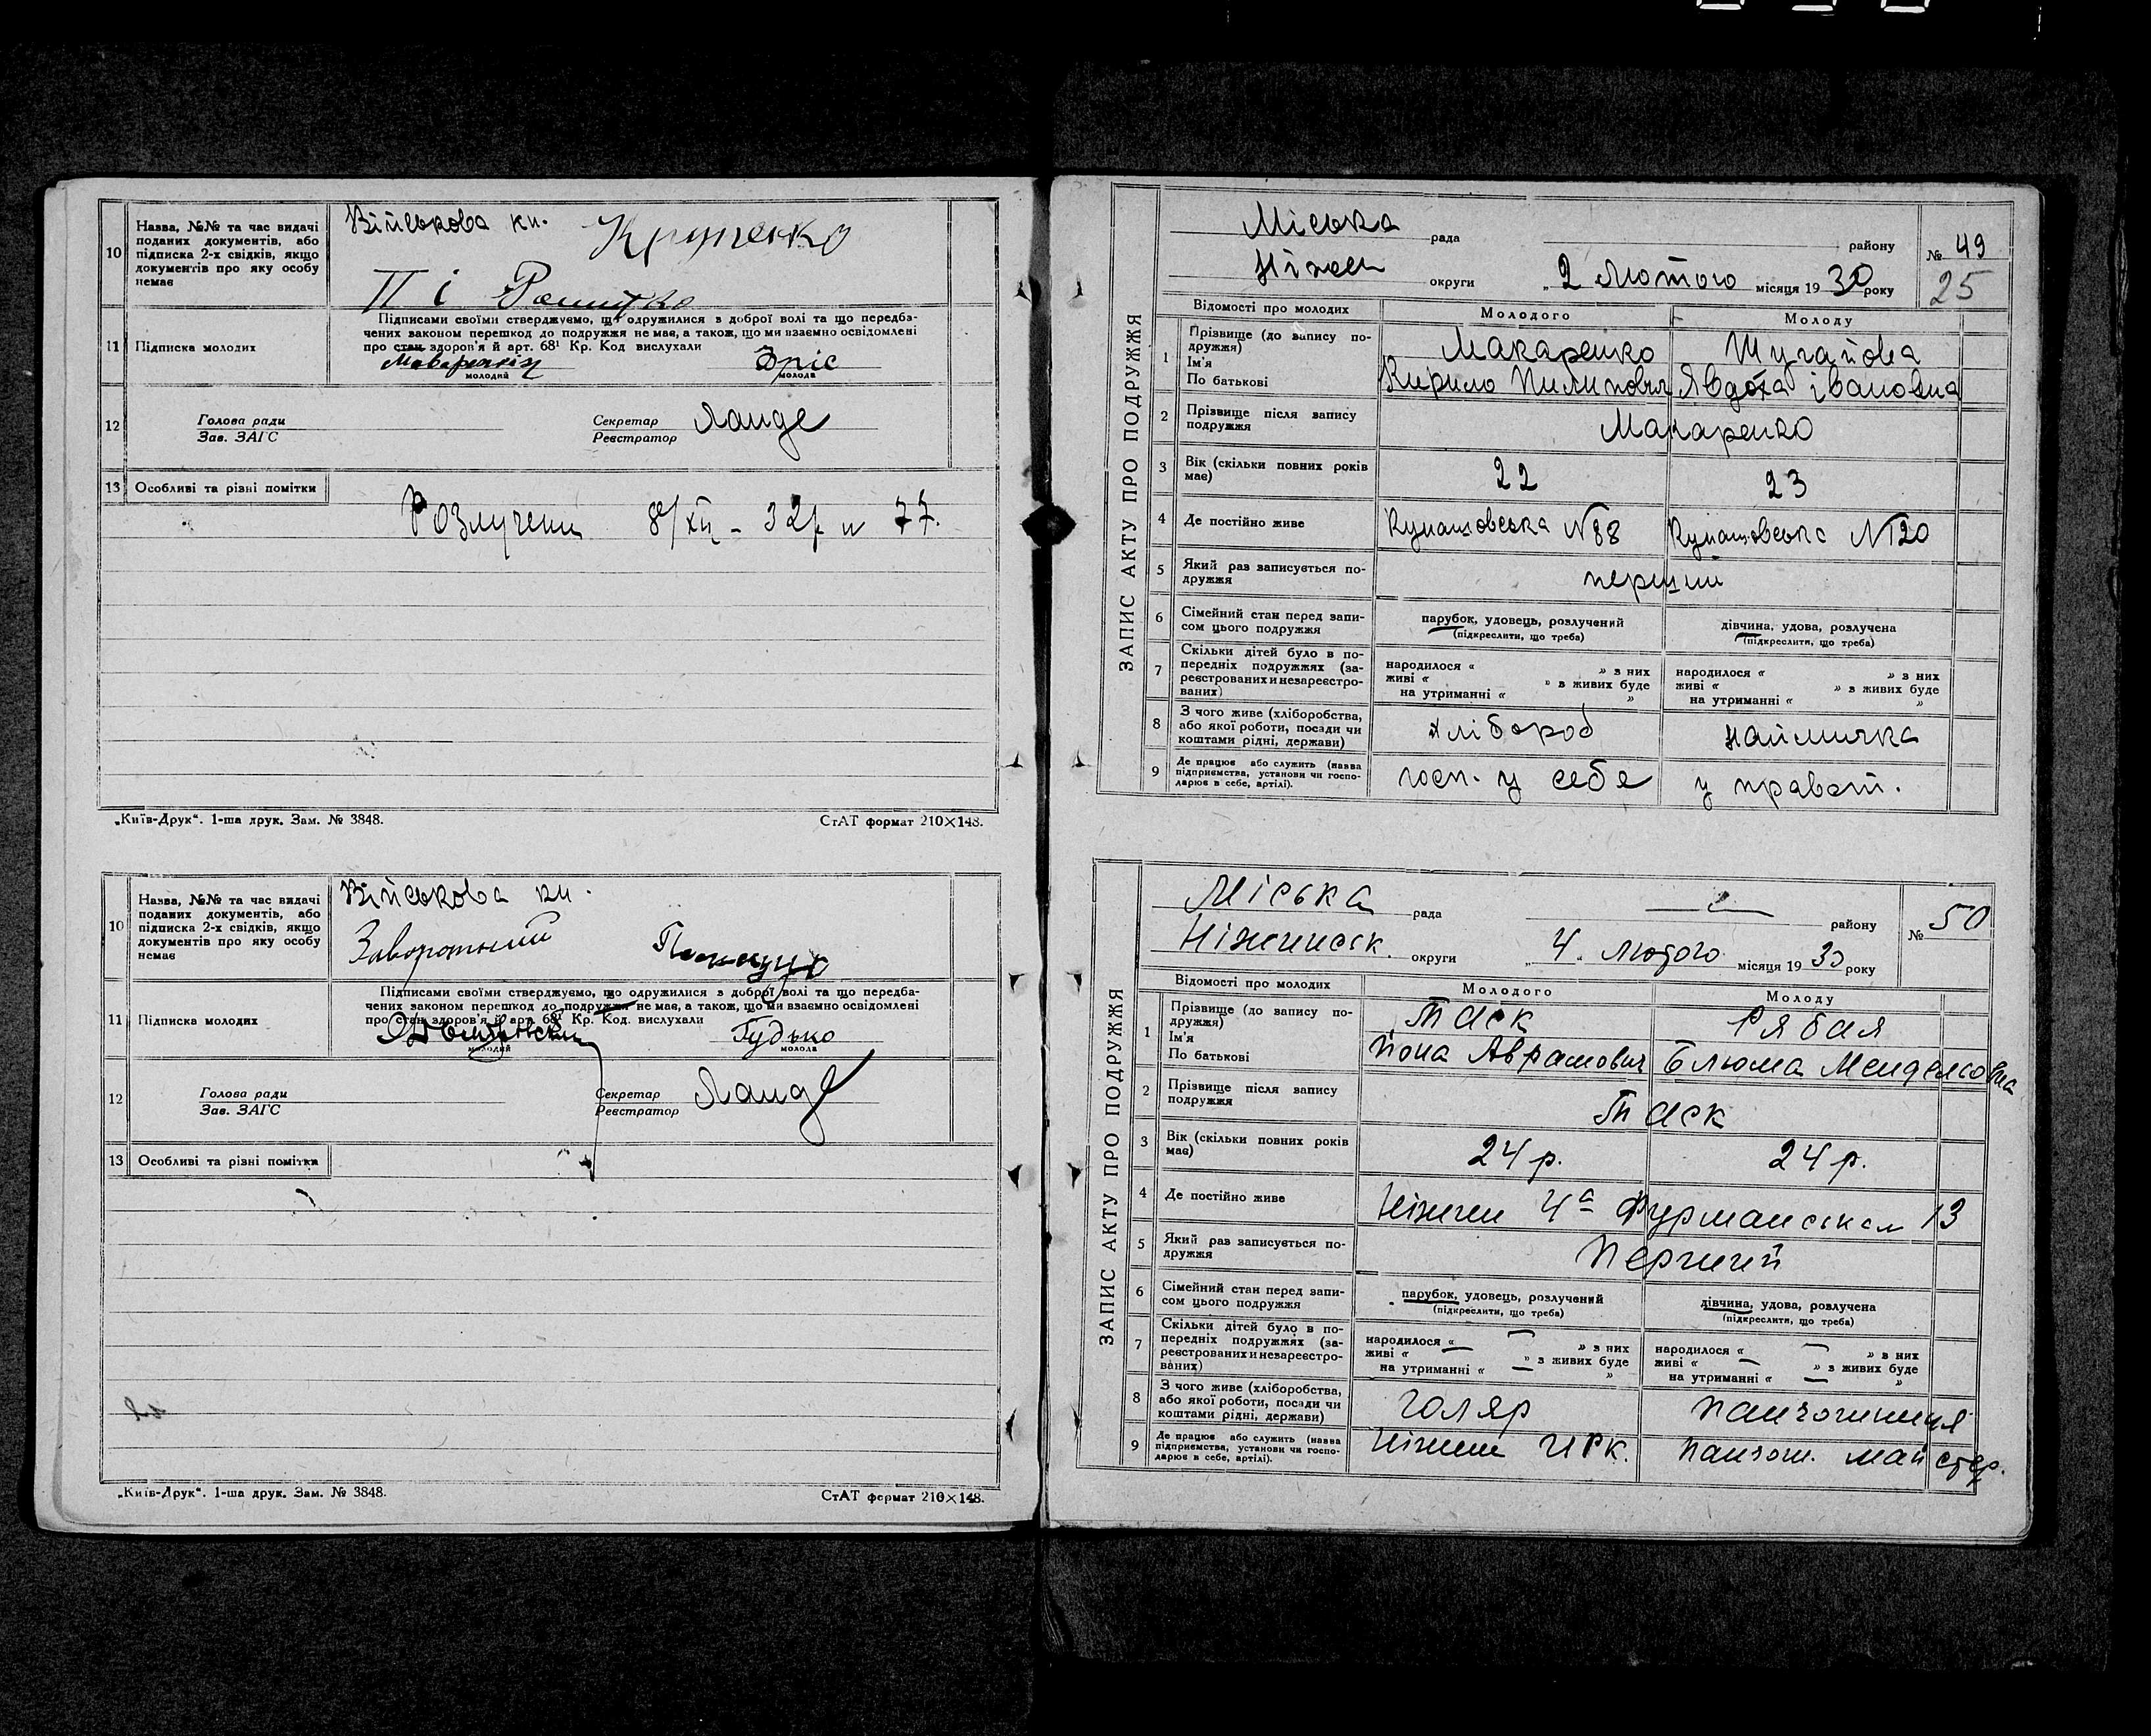 10
Назва, №№ та час видачі
поданих документів, або
підписка 2-х свідків, якщо
документів про яку особу
немає
Військова кн.
П і
11
Підписка молодих
Підписами своїми стверджуємо, що одружилися з доброї волі та що передба-
чених законом перешкод до подружжя не має, а також, що ми взаємно освідомлені
про стан здоров'я й арт. 68¹ Кр. Код вислухали
молодий
молода
12
Голова ради
Зав. ЗАГС
Секретар
Реєстратор
Ланде
13
Особливі та різні помітки
Розлучени 8/XII - 32 р № 77.
„Київ-Друк“. 1-ша друк. Зам. № 3848.
СтАТ формат 210×148.
10
Назва, №№ та час видачі
поданих документів, або
підписка 2-х свідків, якщо
документів про яку особу
немає
Військова кн.
Заворотний
11
Підписка молодих
Підписами своїми стверджуємо, що одружилися з доброї волі та що передба-
чених законом перешкод до подружжя не має, а також, що ми взаємно освідомлені
про стан здоров'я й арт. 68¹ Кр. Код. вислухали
Гудько
молодий
молода
12
Голова ради
Зав. ЗАГС
Секретар
Реєстратор
Ланде
13
Особливі та різні помітки
„Київ-Друк“. 1-ша друк. Зам. № 3848.
СтАТ формат 210×148.
ЗАПИС АКТУ ПРО ПОДРУЖЖЯ
Міська рада району
№ 49
Ніжен округи „ 2 Лютого місяця 1930 року
25
Відомості про молодих
Молодого
Молоду
1
Прізвище (до запису по-
дружжя)
Ім'я
По батькові
Макаренко
Кирило Пилипович
Шугайова
Явдоха Івановна
2
Прізвище після запису
подружжя
Макаренко
3
Вік (скільки повних років
має)
22
23
4
Де постійно живе
Купашовська N 88
Купашовська N 120
5
Який раз записується по-
дружжя
перший
6
Сімейний стан перед запи-
сом цього подружжя
парубок, удовець, розлучений
(підкреслити, що треба)
дівчина, удова, розлучена
(підкреслити, що треба)
7
Скільки дітей було в по-
передніх подружжях (за-
реєстрованих и незареєстро-
ваних)
народилося « » з них
живі « » в живих буде
на утриманні « »
народилося « » з них
живі « » в живих буде
на утриманні « »
8
З чого живе (хліборобства,
або якої роботи, посади чи
коштами рідні, держави)
хлібороб
наймичка
9
Де працює або служить (назва
підприємства, установи чи госпо-
дарює в себе, артілі).
госп. у себе
у приват.
ЗАПИС АКТУ ПРО ПОДРУЖЖЯ
Міська рада району
№ 50
Ніженск. округи „ 4 „ лютого місяця 1930 року
Відомості про молодих
Молодого
Молоду
1
Прізвище (до запису по-
дружжя)
Ім'я
По батькові
Таск
Йона Аврамович
Рябая
Блюма Менделсовна
2
Прізвище після запису
подружжя
Таск
3
Вік (скільки повних років
має)
24 р.
24 р.
4
Де постійно живе
Ніжен 4а Фурманська 13
5
Який раз записується по-
дружжя
Перший
6
Сімейний стан перед запи-
сом цього подружжя
парубок, удовець, розлучений
(підкреслити, що треба)
дівчина, удова, розлучена
(підкреслити, що треба)
7
Скільки дітей було в по-
передніх подружжях (за-
реєстрованих и незареєстро-
ваних)
народилося « — » з них
живі « — » в живих буде
на утриманні « — »
народилося « — » з них
живі « — » в живих буде
на утриманні « — »
8
З чого живе (хліборобства,
або якої роботи, посади чи
коштами рідні, держави)
голяр
панчошниця
9
Де працює або служить (назва
підприємства, установи чи госпо-
дарює в себе, артілі).
Ніжин
панчош. майстер.